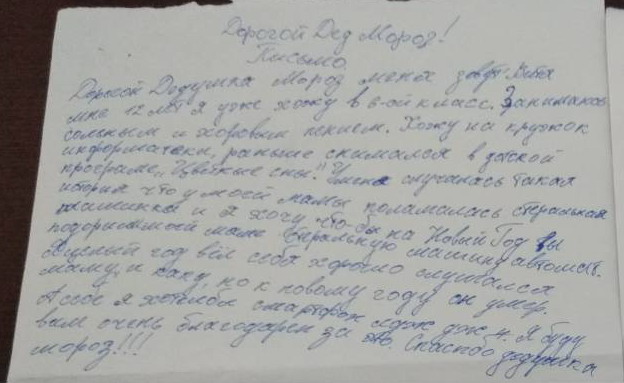 Дорогой Дед Мороз!
Письмо
Дорогой Дедушка Мороз меня зовут Витя
мне 12 лет я уже хожу в 6-ой класс. Занимаюсь
сольным и хоровым пением. Хожу на кружок
информатеки, раньше снимался в детской
програме „Цветные сны." У меня случилась такая
история что у моей мамы поламалась стеральная
машинка и я хочу что-бы на Новый Год вы
подорили моей маме стеральную машину автомат.
Я целый год вёл себя хорошо слушался
маму, и папу, но к новому году он умер.
А себе я хотелбы смартфон 4. Я буду
вам очень благодарен за это. Спасибо дедушка
мороз!!!